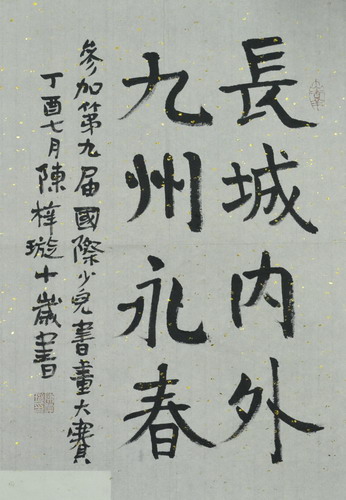 長城内外
九州永春
參加第九届國際少兒書畫大賽
丁酉七月陳梓璇十歲書